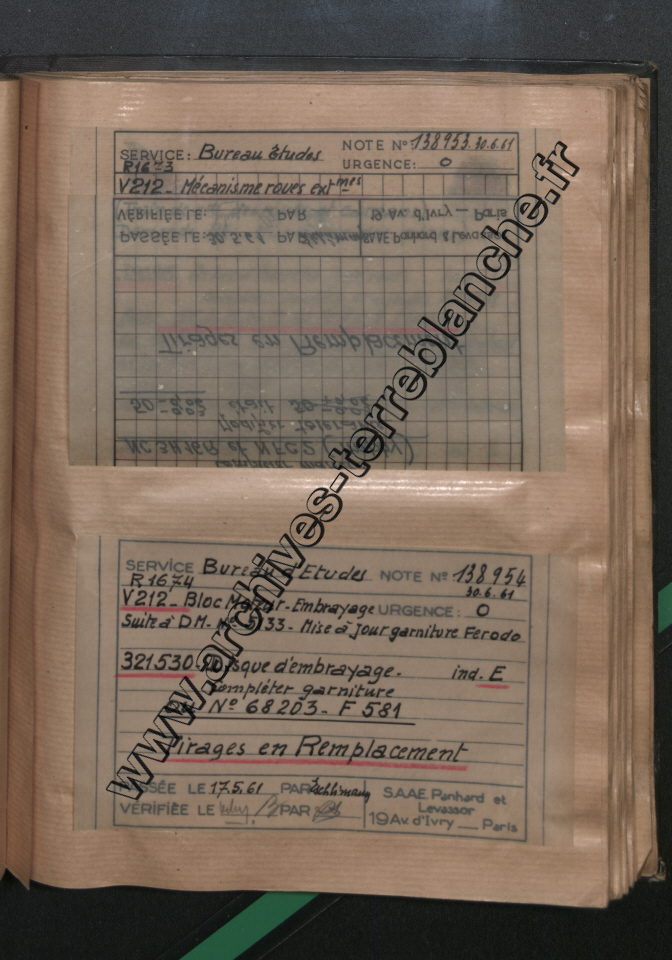 SERVICE: Bureau Études NOTE N° 138953 30.6.61
R1673 URGENCE: 0
V212_ Mécanisme roues extmes
VÉRIFIÉE LE: PAR 19, Av. d'Ivry _ Paris
PASSÉE LE: 30.5.61 PAR SAAE Panhard & Levassor
Tirages en Remplacement
était
Modifier
NC3H16R et NFC2
SERVICE Bureau d'Etudes NOTE N° 138954
R1674 30.6.61
V212_ Bloc Moteur - Embrayage URGENCE: 0
Suite à D.M- 5133 - Mise à jour garniture Ferodo
321530 - Disque d'embrayage. ind. E
Compléter garniture
N° 68203 - F 581
Tirages en Remplacement
PASSÉE LE 17.5.61 PAR SAAE Panhard et
Levassor
VÉRIFIÉE LE PAR 19 Av. d'Ivry __ Paris
www.archives-terreblanche.fr